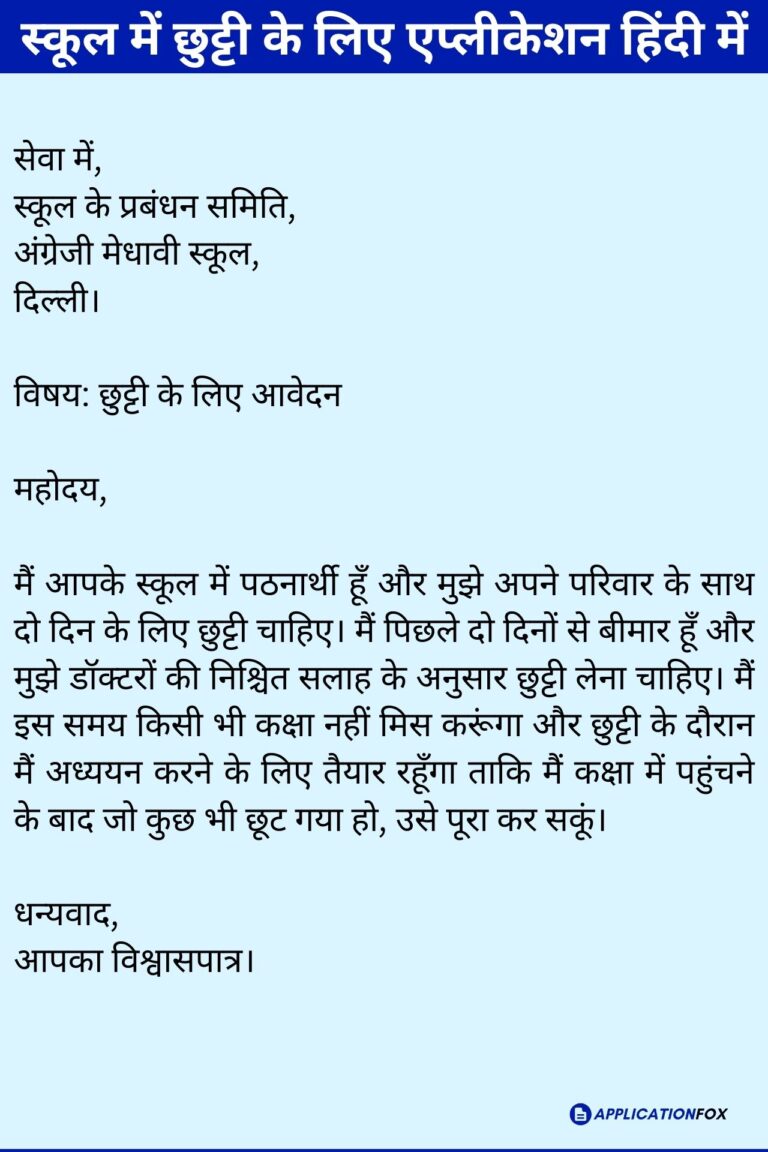 स्कूल में छुट्टी के लिए एप्लीकेशन हिंदी में
सेवा में,
स्कूल के प्रबंधन समिति,
अंग्रेजी मेधावी स्कूल,
दिल्ली।
विषय: छुट्टी के लिए आवेदन
महोदय,
मैं आपके स्कूल में पठनार्थी हूँ और मुझे अपने परिवार के साथ
दो दिन के लिए छुट्टी चाहिए। मैं पिछले दो दिनों से बीमार हूँ और
मुझे डॉक्टरों की निश्चित सलाह के अनुसार छुट्टी लेना चाहिए। मैं
इस समय किसी भी कक्षा नहीं मिस करूंगा और छुट्टी के दौरान
मैं अध्ययन करने के लिए तैयार रहूँगा ताकि मैं कक्षा में पहुंचने
के बाद जो कुछ भी छूट गया हो, उसे पूरा कर सकूं।
धन्यवाद,
आपका विश्वासपात्र।
APPLICATIONFOX